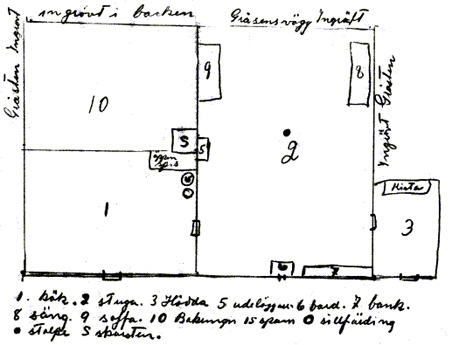 ingrövt i backen
Gråstensvägg Ingräft
Gråsten Ingrävt
Ingrävt Gråsten
9
8
10
S
5
öppen
spis
2
1
Kista
3
6
7
1. kök. 2 stuga. 3 Hödda 5 udslöggun. 6 bord. 7 bank.
8 säng. 9 soffa. 10 Bakungn 15 spam O sillfjärding
• stolpe S skorsten.